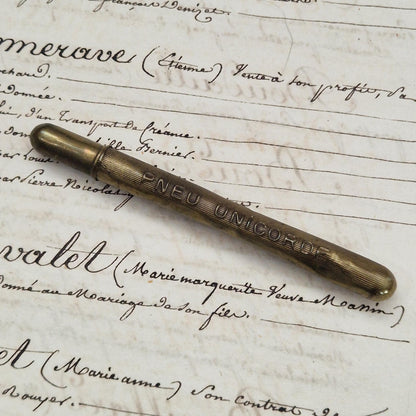 François Denizet
merave (Etienne) Vente à son profit, pa
chard.
donnée.
d'un Transport de Créance.
ille Bernier.
par Louis
par Pierre Nicolas
PNEU UNICORDE
valet (Marie marguerite Veuve Massin)
donné au Mariage de son fils.
et (Marie anne) son contrat
Royer.